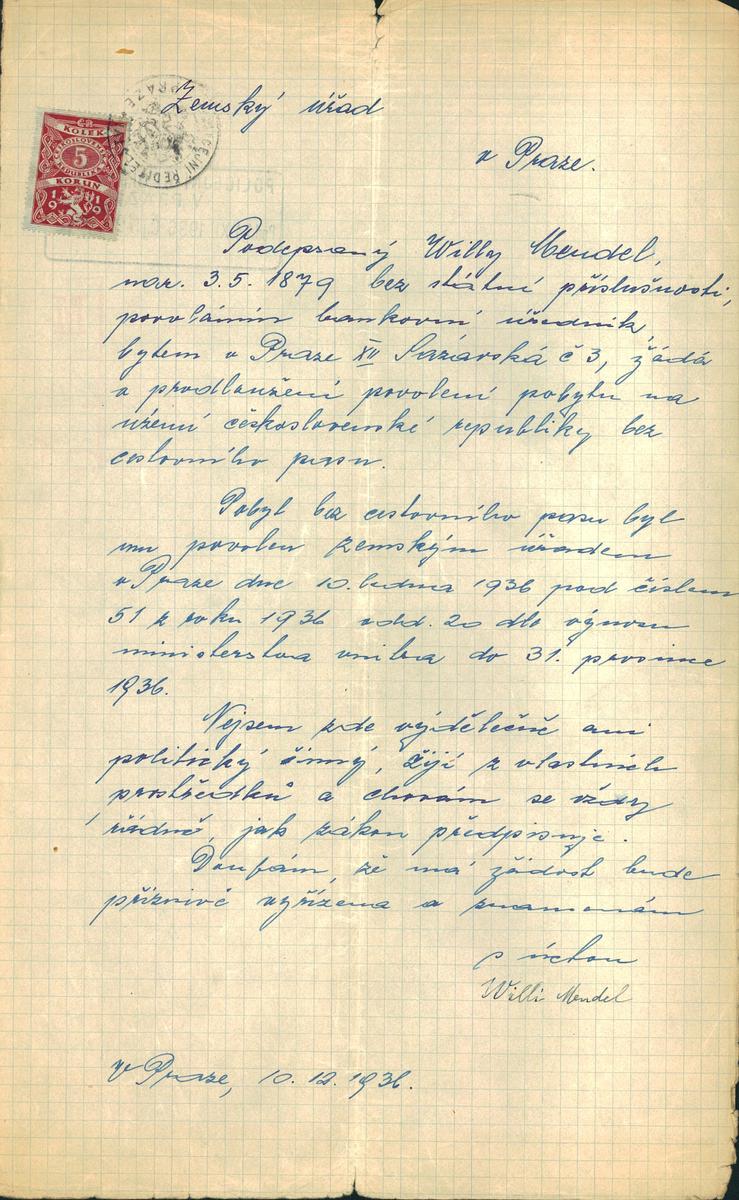 Zemský úřad
v Praze.
ČR
KOLEK
5
KORUN
19
Podepsaný Willy Mendel,
nar. 3.5. 1879 bez státní příslušnosti,
povoláním bankovní úředník,
bytem v Praze XII Sázavská č 3, žádá
o prodloužení povolení pobytu na
území československé republiky bez
cestovního pasu.
Pobyt bez cestovního pasu byl
mu povolen zemským úřadem
v Praze dne 10. ledna 1936 pod číslem
51 z roku 1936 odd. 20 dle výnosu
ministerstva vnitra do 31. prosince
1936.
Nejsem zde výdělečně ani
politický činný, žiji z vlastních
prostředků a chovám se vždy
řádně, jak zákon předpisuje.
Doufám, že má žádost bude
příznivě vyřízena a znamenám
s úctou
Willi Mendel
V Praze, 10. 12. 1936.